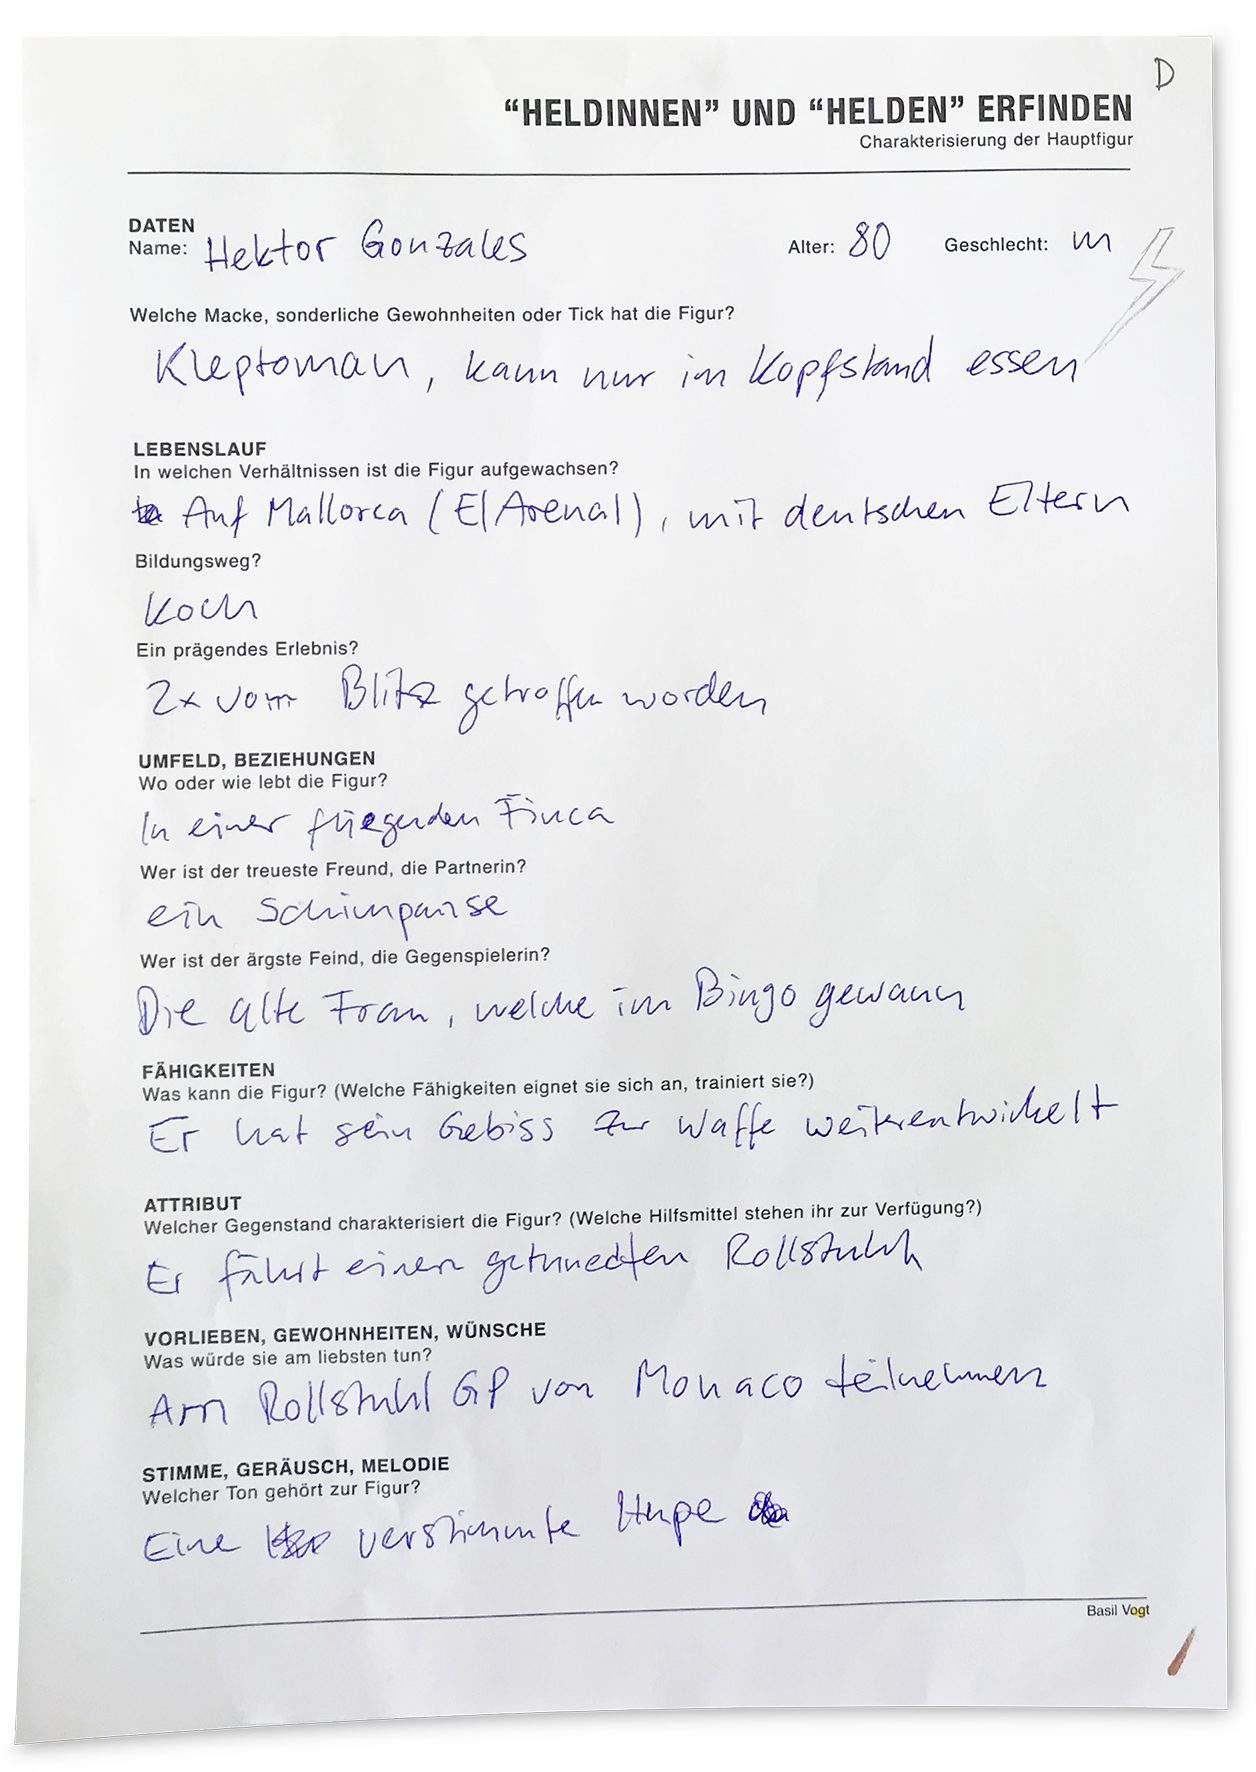 D
“HELDINNEN” UND “HELDEN” ERFINDEN
Charakterisierung der Hauptfigur
DATEN
Name: Hektor Gonzales Alter: 80 Geschlecht: m
Welche Macke, sonderliche Gewohnheiten oder Tick hat die Figur?
Kleptoman, kann nur im Kopfstand essen
LEBENSLAUF
In welchen Verhältnissen ist die Figur aufgewachsen?
Auf Mallorca (El Arenal), mit deutschen Eltern
Bildungsweg?
Koch
Ein prägendes Erlebnis?
2x vom Blitz getroffen worden
UMFELD, BEZIEHUNGEN
Wo oder wie lebt die Figur?
In einer fliegenden Finca
Wer ist der treueste Freund, die Partnerin?
ein Schimpanse
Wer ist der ärgste Feind, die Gegenspielerin?
Die alte Frau, welche im Bingo gewann
FÄHIGKEITEN
Was kann die Figur? (Welche Fähigkeiten eignet sie sich an, trainiert sie?)
Er hat sein Gebiss zur Waffe weiterentwickelt
ATTRIBUT
Welcher Gegenstand charakterisiert die Figur? (Welche Hilfsmittel stehen ihr zur Verfügung?)
Er fährt einen getunedten Rollstuhl
VORLIEBEN, GEWOHNHEITEN, WÜNSCHE
Was würde sie am liebsten tun?
Am Rollstuhl GP von Monaco teilnehmen
STIMME, GERÄUSCH, MELODIE
Welcher Ton gehört zur Figur?
Eine verstimmte Hupe
Basil Vogt